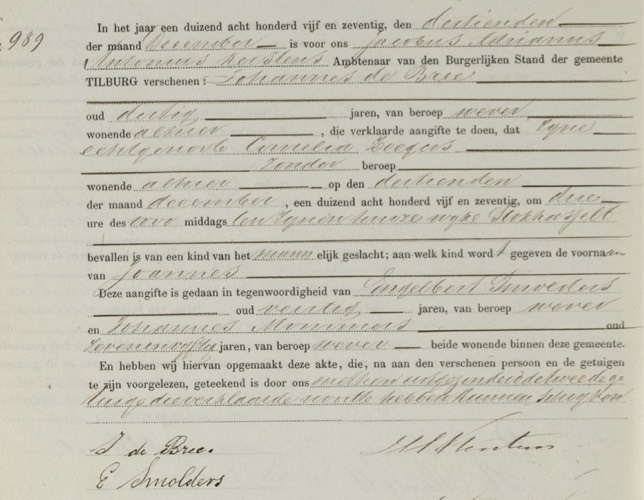 989
In het jaar een duizend acht honderd vijf en zeventig, den dertienden
der maand December is voor ons Jacobus Adrianus
Antonius Kerstens Ambtenaar van den Burgerlijken Stand der gemeente
TILBURG verschenen: Johannes de Bree
oud dertig jaren, van beroep wever
wonende alhier, die verklaarde aangifte te doen, dat zijne
echtgenoote Cornelia Zeegers
zonder beroep
wonende alhier op den dertienden
der maand december, een duizend acht honderd vijf en zeventig, om drie
ure des voor middags ten zijnen huize wijk Stokhasselt
bevallen is van een kind van het mannelijk geslacht; aan welk kind wordt gegeven de voornaam
van Joannes
Deze aangifte is gedaan in tegenwoordigheid van Engelbert Smolders
oud veertig jaren, van beroep wever
en Johannes Mommers oud
zevenenvijftig jaren, van beroep wever beide wonende binnen deze gemeente.
En hebben wij hiervan opgemaakt deze akte, die, na aan den verschenen persoon en de getuigen
te zijn voorgelezen, geteekend is door ons met hen uitgezonderd de tweede ge
tuige die verklaarde nooit te hebben kunnen schrijven
J de Bree
E Smolders